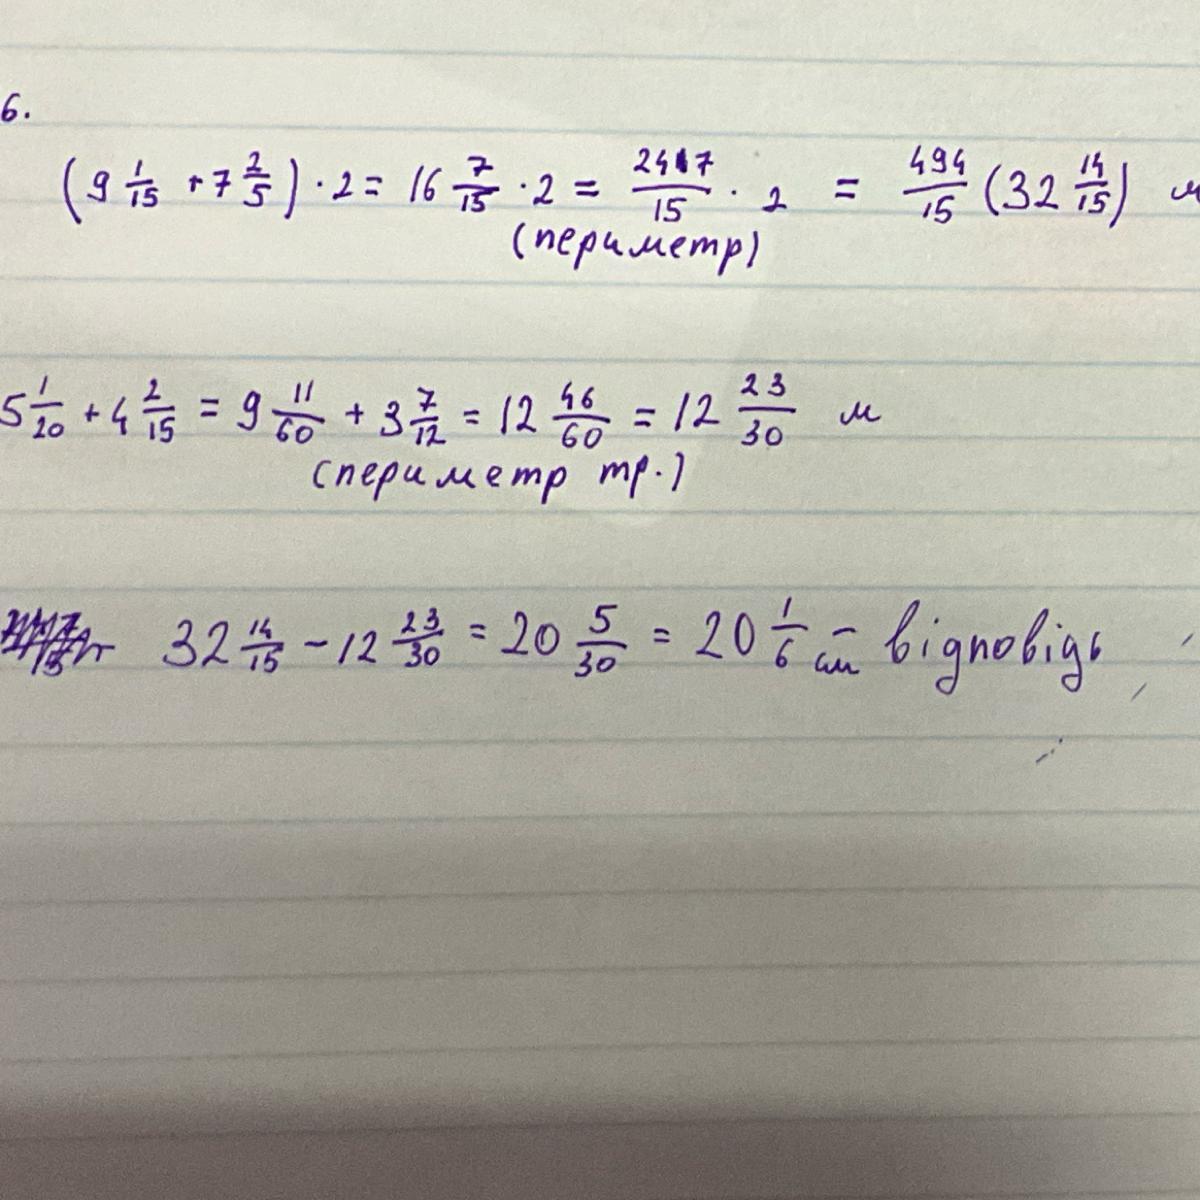 6.
(9 1/15 + 7 2/5) · 2 = 16 7/15 · 2 = 2417/15 · 2 = 494/15 (32 14/15) м
(периметр)
5 1/20 + 4 2/15 = 9 11/60 + 3 7/12 = 12 46/60 = 12 23/30 м
(периметр тр.)
32 14/15 - 12 23/30 = 20 5/30 = 20 1/6 см - відповідь